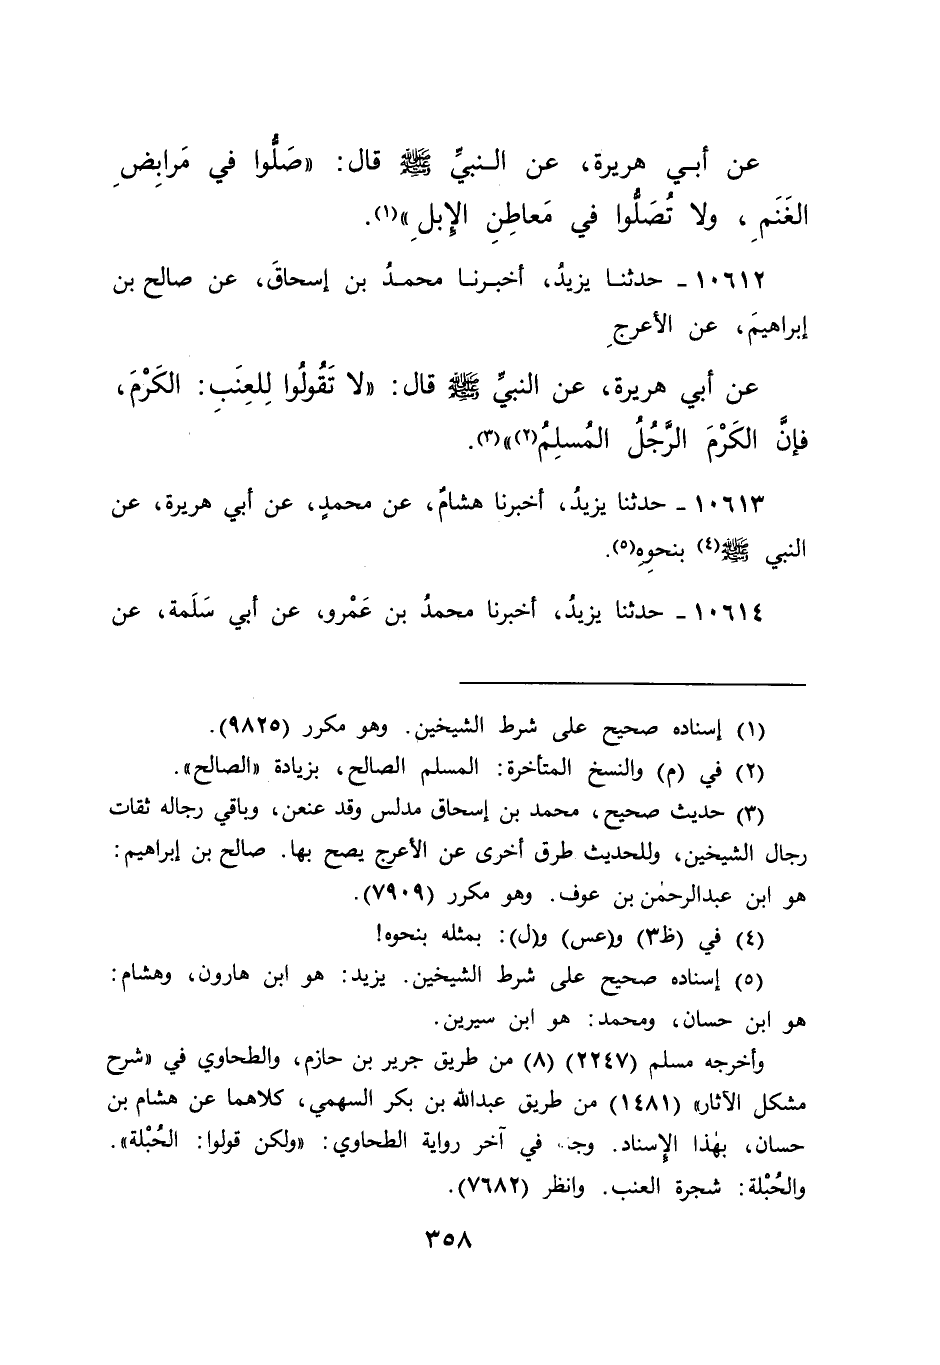 عن أبي هريرة، عن النبيِّ ﷺ قال: «صَلُّوا في مَرابِضِ
الغَنَمِ، ولا تُصَلُّوا في مَعاطِنِ الإِبلِ»(١).
١٠٦١٢ ـ حدثنا يزيدُ، أخبرنا محمدُ بن إسحاقَ، عن صالح بن
إبراهيمَ، عن الأعرجِ
عن أبي هريرة، عن النبيِّ ﷺ قال: «لا تَقُولُوا لِلعِنَبِ: الكَرْمَ،
فإنَّ الكَرْمَ الرَّجُلُ المُسلِمُ(٢)»(٣).
١٠٦١٣ ـ حدثنا يزيدُ، أخبرنا هشامٌ، عن محمدٍ، عن أبي هريرة، عن
النبي ﷺ(٤) بنحوِهِ(٥).
١٠٦١٤ ـ حدثنا يزيدُ، أخبرنا محمدُ بن عَمْرو، عن أبي سَلَمة، عن
(١) إسناده صحيح على شرط الشيخين. وهو مكرر (٩٨٢٥).
(٢) في (م) والنسخ المتأخرة: المسلم الصالح، بزيادة «الصالح».
(٣) حديث صحيح، محمد بن إسحاق مدلس وقد عنعن، وباقي رجاله ثقات
رجال الشيخين، وللحديث طرق أخرى عن الأعرج يصح بها. صالح بن إبراهيم:
هو ابن عبدالرحمٰن بن عوف. وهو مكرر (٧٩٠٩).
(٤) في (ظ٣) و(عس) و(ل): بمثله بنحوه!
(٥) إسناده صحيح على شرط الشيخين. يزيد: هو ابن هارون، وهشام:
هو ابن حسان، ومحمد: هو ابن سيرين.
وأخرجه مسلم (٢٢٤٧) (٨) من طريق جرير بن حازم، والطحاوي في «شرح
مشكل الآثار» (١٤٨١) من طريق عبدالله بن بكر السهمي، كلاهما عن هشام بن
حسان، بهٰذا الإِسناد. وجاء في آخر رواية الطحاوي: «ولكن قولوا: الحُبْلة».
والحُبْلة: شجرة العنب. وانظر (٧٦٨٢).
٣٥٨